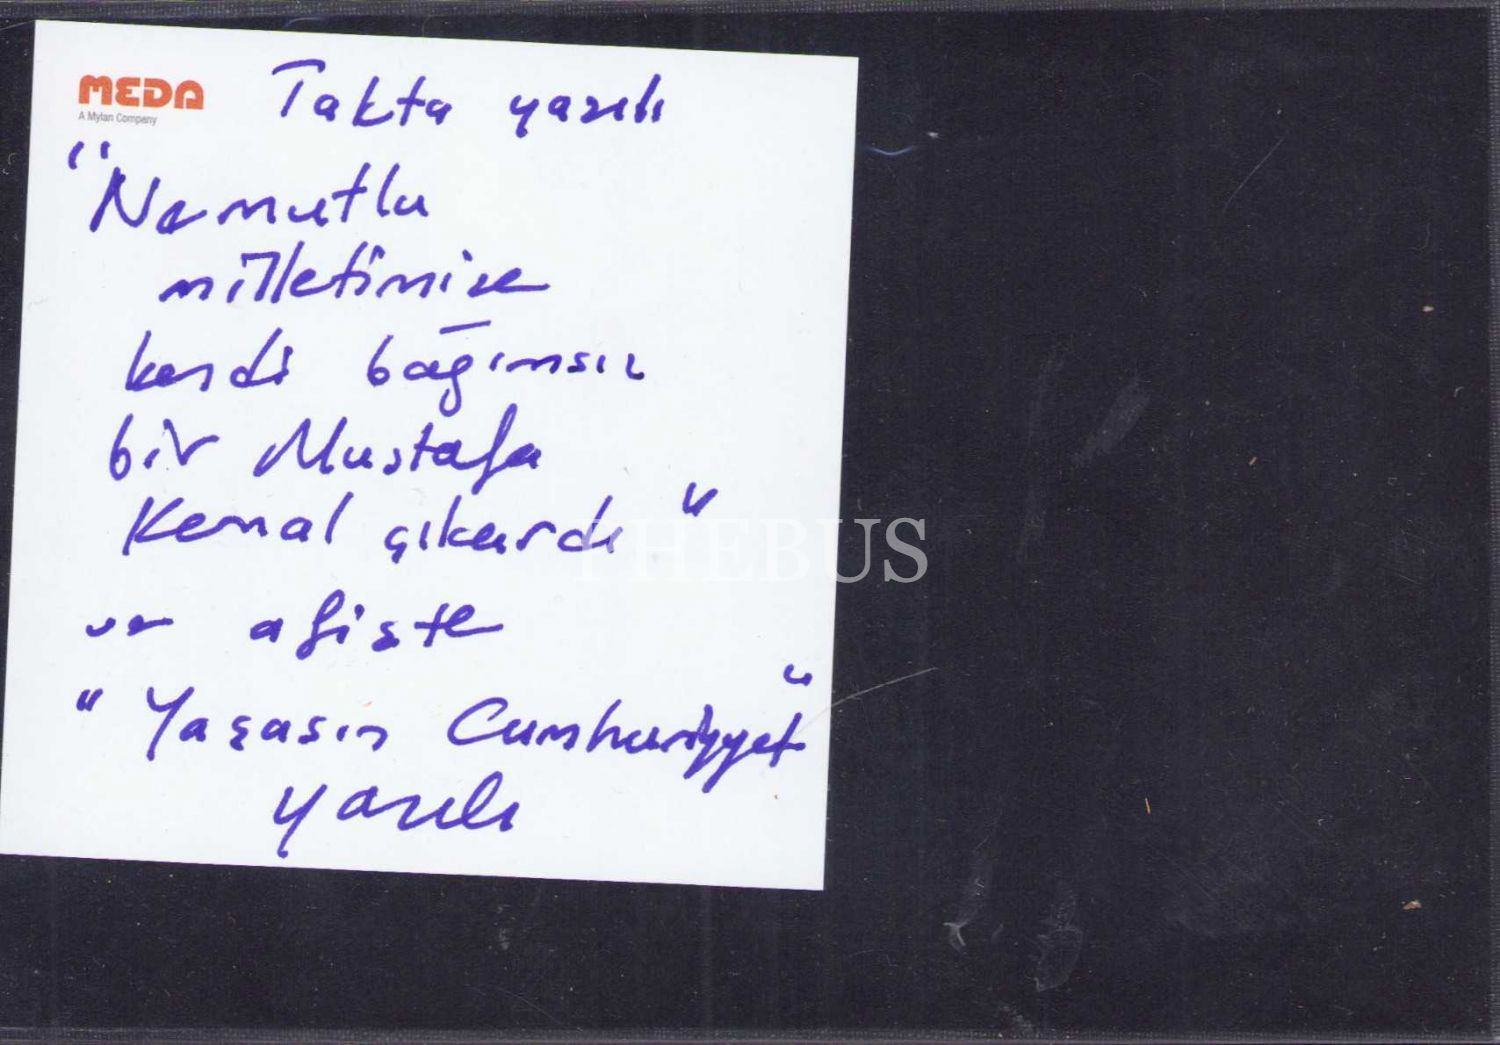 MEDA
A Mylan Company
Takta yazılı
"Ne mutlu
milletimize
kendi bağımsız
bir Mustafa
Kemal çıkardı"
ve afişte
"Yaşasın Cumhuriyyet"
yazılı
PHEBUS